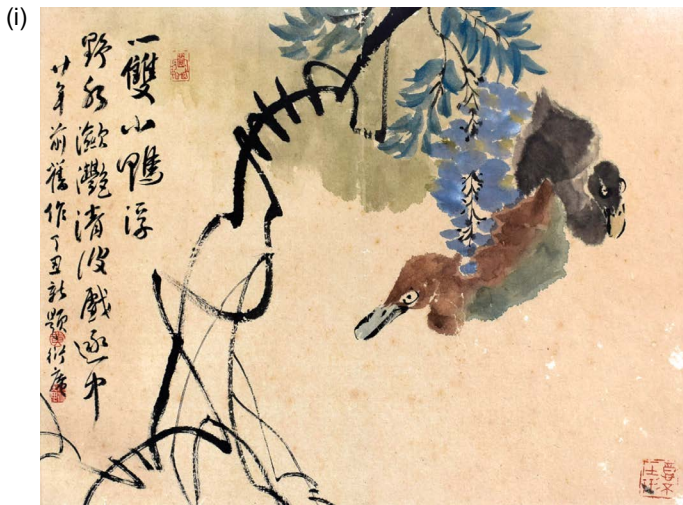 (i)
一雙小鴨浮
野水瀲灩清波戲逐中
廿年前舊作丁丑新題衍庸